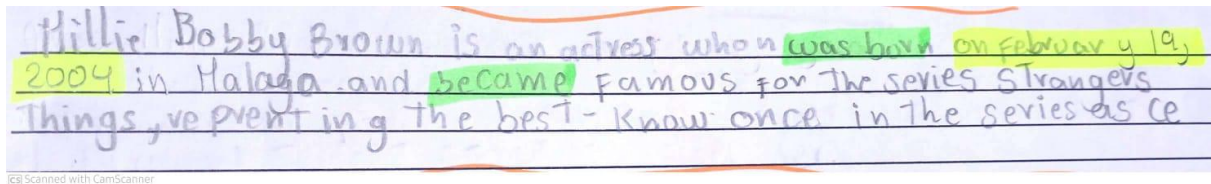 Millie Bobby Brown is an actress when was born on February 19,
2004 in Malaga. and became Famous For The series Strangers
Things, reprenting the best-Know once in the series as ce
CS Scanned with CamScanner